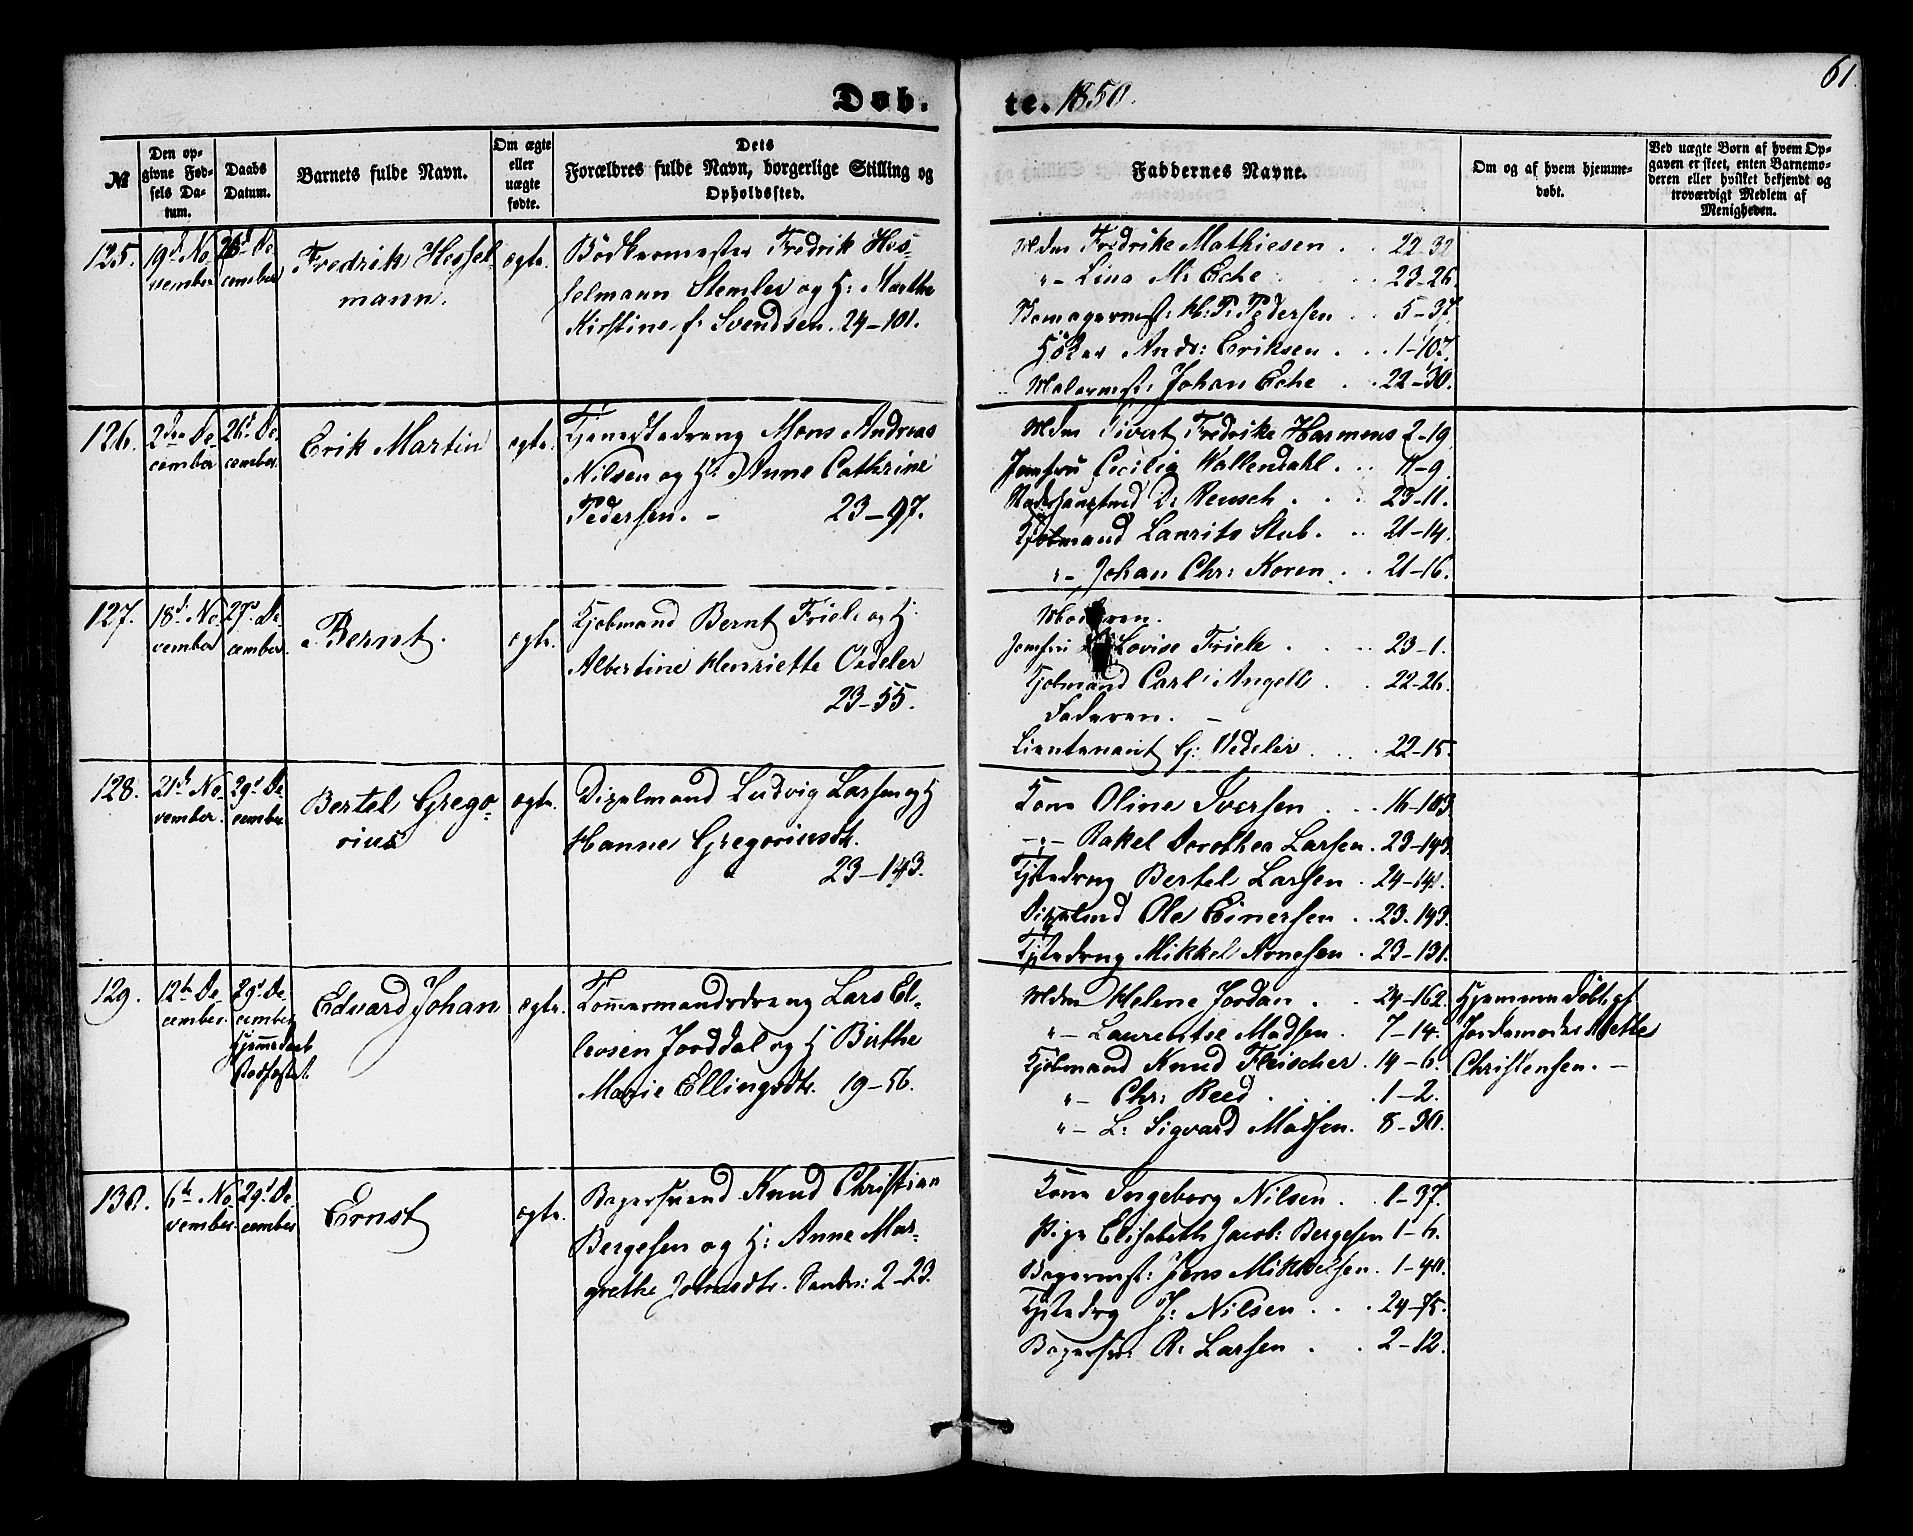 Døb.
te. 1850.
61
№
Den op-
givne Fød-
sels Da-
tum.
Daabs
Datum.
Barnets fulde Navn.
Om ægte
eller
uægte
fødte.
Dets
Forældres fulde Navn, borgerlige Stilling og
Opholdssted.
Faddernes Navne.
Om og af hvem hjemme-
døbt.
Ved uægte Børn af hvem Op-
gaven er skeet, enten Barnemo-
deren eller hvilket bekjendt og
troværdigt Medlem af
Menigheden.
125.
19d No-
vember
26d De-
cember
Fredrik Hessel-
mann.
ægte.
Bødkermester Fredrik Hes-
selmann Stemler og H: Marthe
Kirstine f: Svendsen. 24-101.
Mdm Fredrikke Mathiesen . . 22-32
"- Lina M: Eche . . 23-26.
P: Pedersen . . 5-37.
Höker Andr: Eriksen . . . 1-107.
Malermst: Johan Eche . . 22-30.
126.
2den De-
cember
26d De-
cember.
Erik Martin
ægte.
Tjenestedreng Mons Andreas
Nilsen og H: Anne Cathrine
Pedersen. - 23-97.
Mdm Sivert Fredrikke Harmens 2-19.
Jomfru Cecilia Wallendahl . . 11-9.
D: Reusch . . . 23-11.
Kjøbmand Laurits Stub. . . 21-14.
"- Johan Chr: Koren . . 21-16.
127.
18d No-
vember
27d De-
cember.
Bernt.
ægte.
Kjøbmand Bernt Friele og H.
Albertine Henriette Vedeler
23-55.
Moderen.
Jomfru Lovise Friele . . . 23-1.
Kjøbmand Carl Angell . . 22-26.
Faderen. -
Lieutenant G: Vedeler . . . 22-15.
128.
21d No-
vember.
29d De-
cember.
Bertel Grego-
rius
ægte.
Ludvig Larsen og H
Hanne Gregoriusdt.
23-143.
Kone Oline Iversen . . . 16-103.
-"- Rakel Dorothea Larsen. 23-143.
Tjstedrng Bertel Larsen . 24-141.
Ole Einersen . . 23.143.
Tjstedrng Mikkel Arnesen . 23-131.
129.
12te De-
cember.
29d De-
cember
Hjemmedaab
Stadfæstet.
Edvard Johan
ægte.
Tømmermandsdreng Lars El-
levsen Jorddal og H Birthe
Marie Ellingsdtr. 19-56.
Mdm Helene Jordan . . 24-162.
"- Laurentse Madsen . 7-14.
Kjøbmand Knud Fleischer . 14-6.
"- Chr: Reed . . . . 1-2.
"- L: Sigvard Madsen. 8-30.
Hjemmedøbt af
Jordemoder Mette
Christensen. -
130.
6te No-
vember.
29d De-
cember
Ernst
ægte.
Bagersvend Knud Christian
Bergesen og H: Anne Mar-
grethe Johnsdtr. Sandv: 2-23.
Kone Ingeborg Nilsen . . 1-37.
Pige Elisabeth Jacob: Bergesen 1-6.
Bagermst: Jens Mikkelsen . 1-40.
Tjstedrg J: Nilsen . . . 24-75.
Bagersv: R: Larsen . . 2-12.